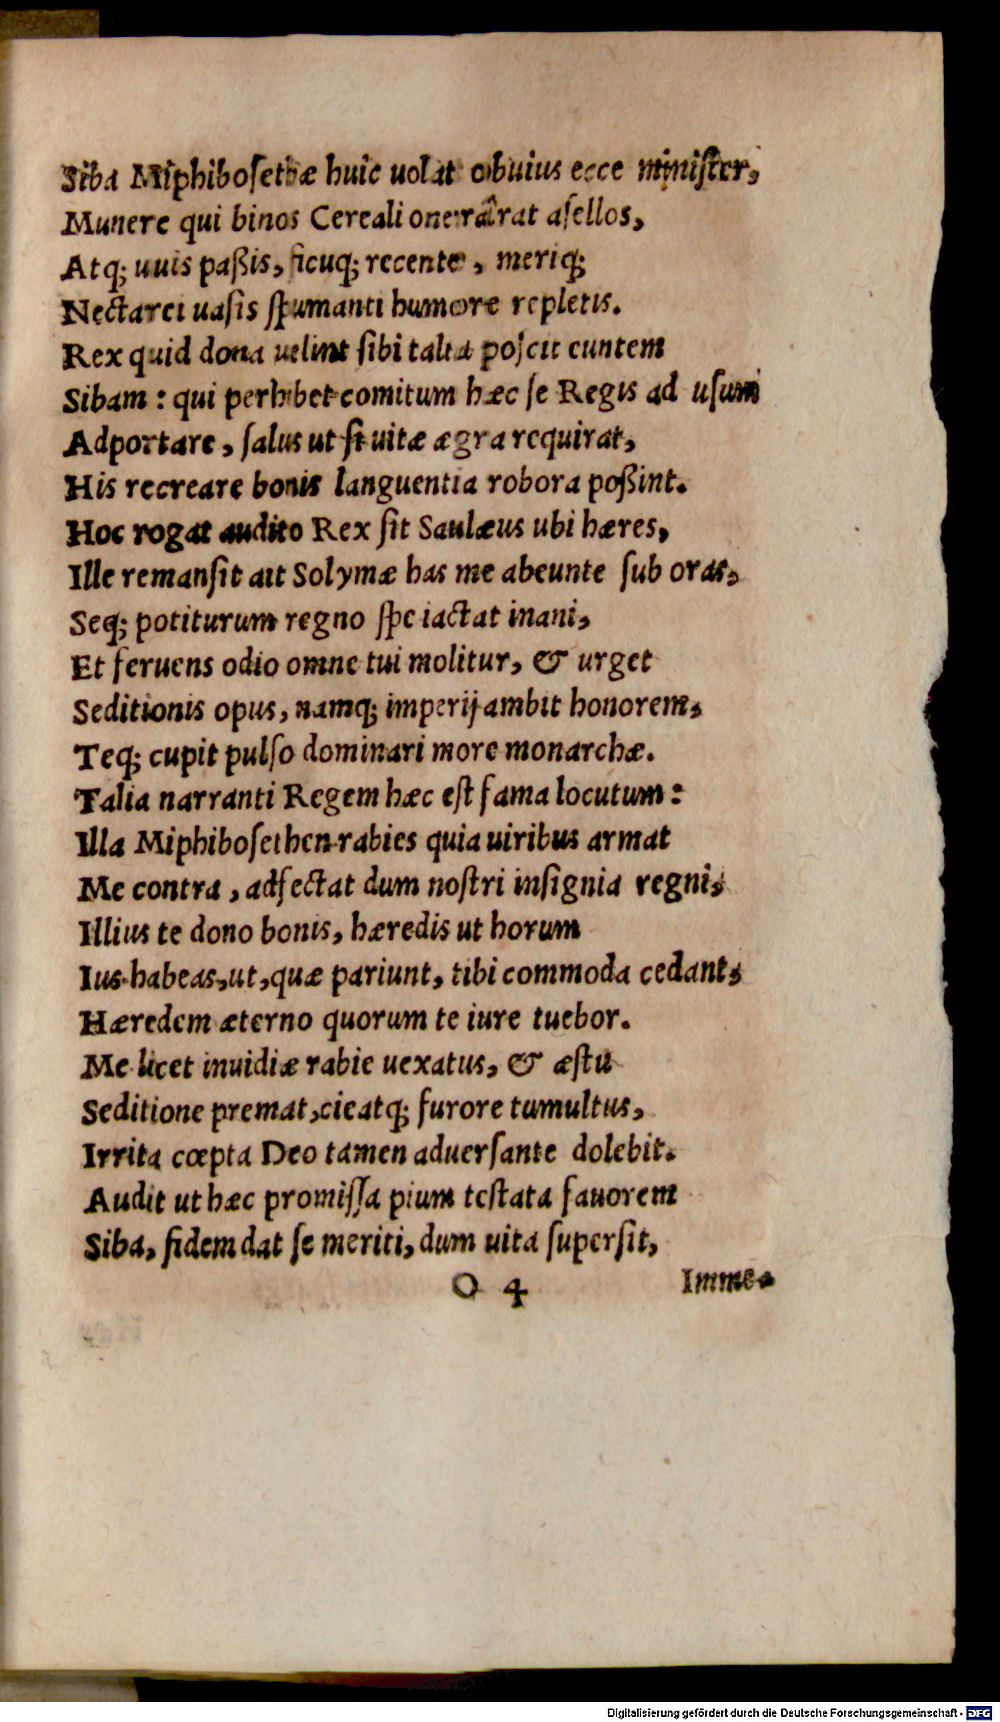 Siba Miphibosethæ huic uolat obuius ecce minister,
Munere qui binos Cereali onerârat asellos,
Atq; uuis paßis, ficuq; recente, meriq;
Nectarei uasis spumanti humore repletis.
Rex quid dona uelint sibi talia poscit euntem
Sibam: qui perhibet comitum hæc se Regis ad usum
Adportare, salus ut si uitæ ægra requirat,
His recreare bonis languentia robora poßint.
Hoc rogat audito Rex sit Saulæus ubi hæres,
Ille remansit ait Solymæ has me abeunte sub oras,
Seq; potiturum regno spe iactat inani,
Et feruens odio omne tui molitur, & urget
Seditionis opus, namq; imperij ambit honorem,
Teq; cupit pulso dominari more monarchæ.
Talia narranti Regem hæc est fama locutum:
Illa Miphibosethen rabies quia uiribus armat
Me contra, adfectat dum nostri insignia regni,
Illius te dono bonis, hæredis ut horum
Ius habeas, ut, quæ pariunt, tibi commoda cedant,
Hæredem æterno quorum te iure tuebor.
Me licet inuidiæ rabie uexatus, & æstu
Seditione premat, cieatq; furore tumultus,
Irrita cœpta Deo tamen aduersante dolebit.
Audit ut hæc promissa pium testata fauorem
Siba, fidem dat se meriti, dum uita supersit,
O 4 Imme-
Digitalisierung gefördert durch die Deutsche Forschungsgemeinschaft - DFG